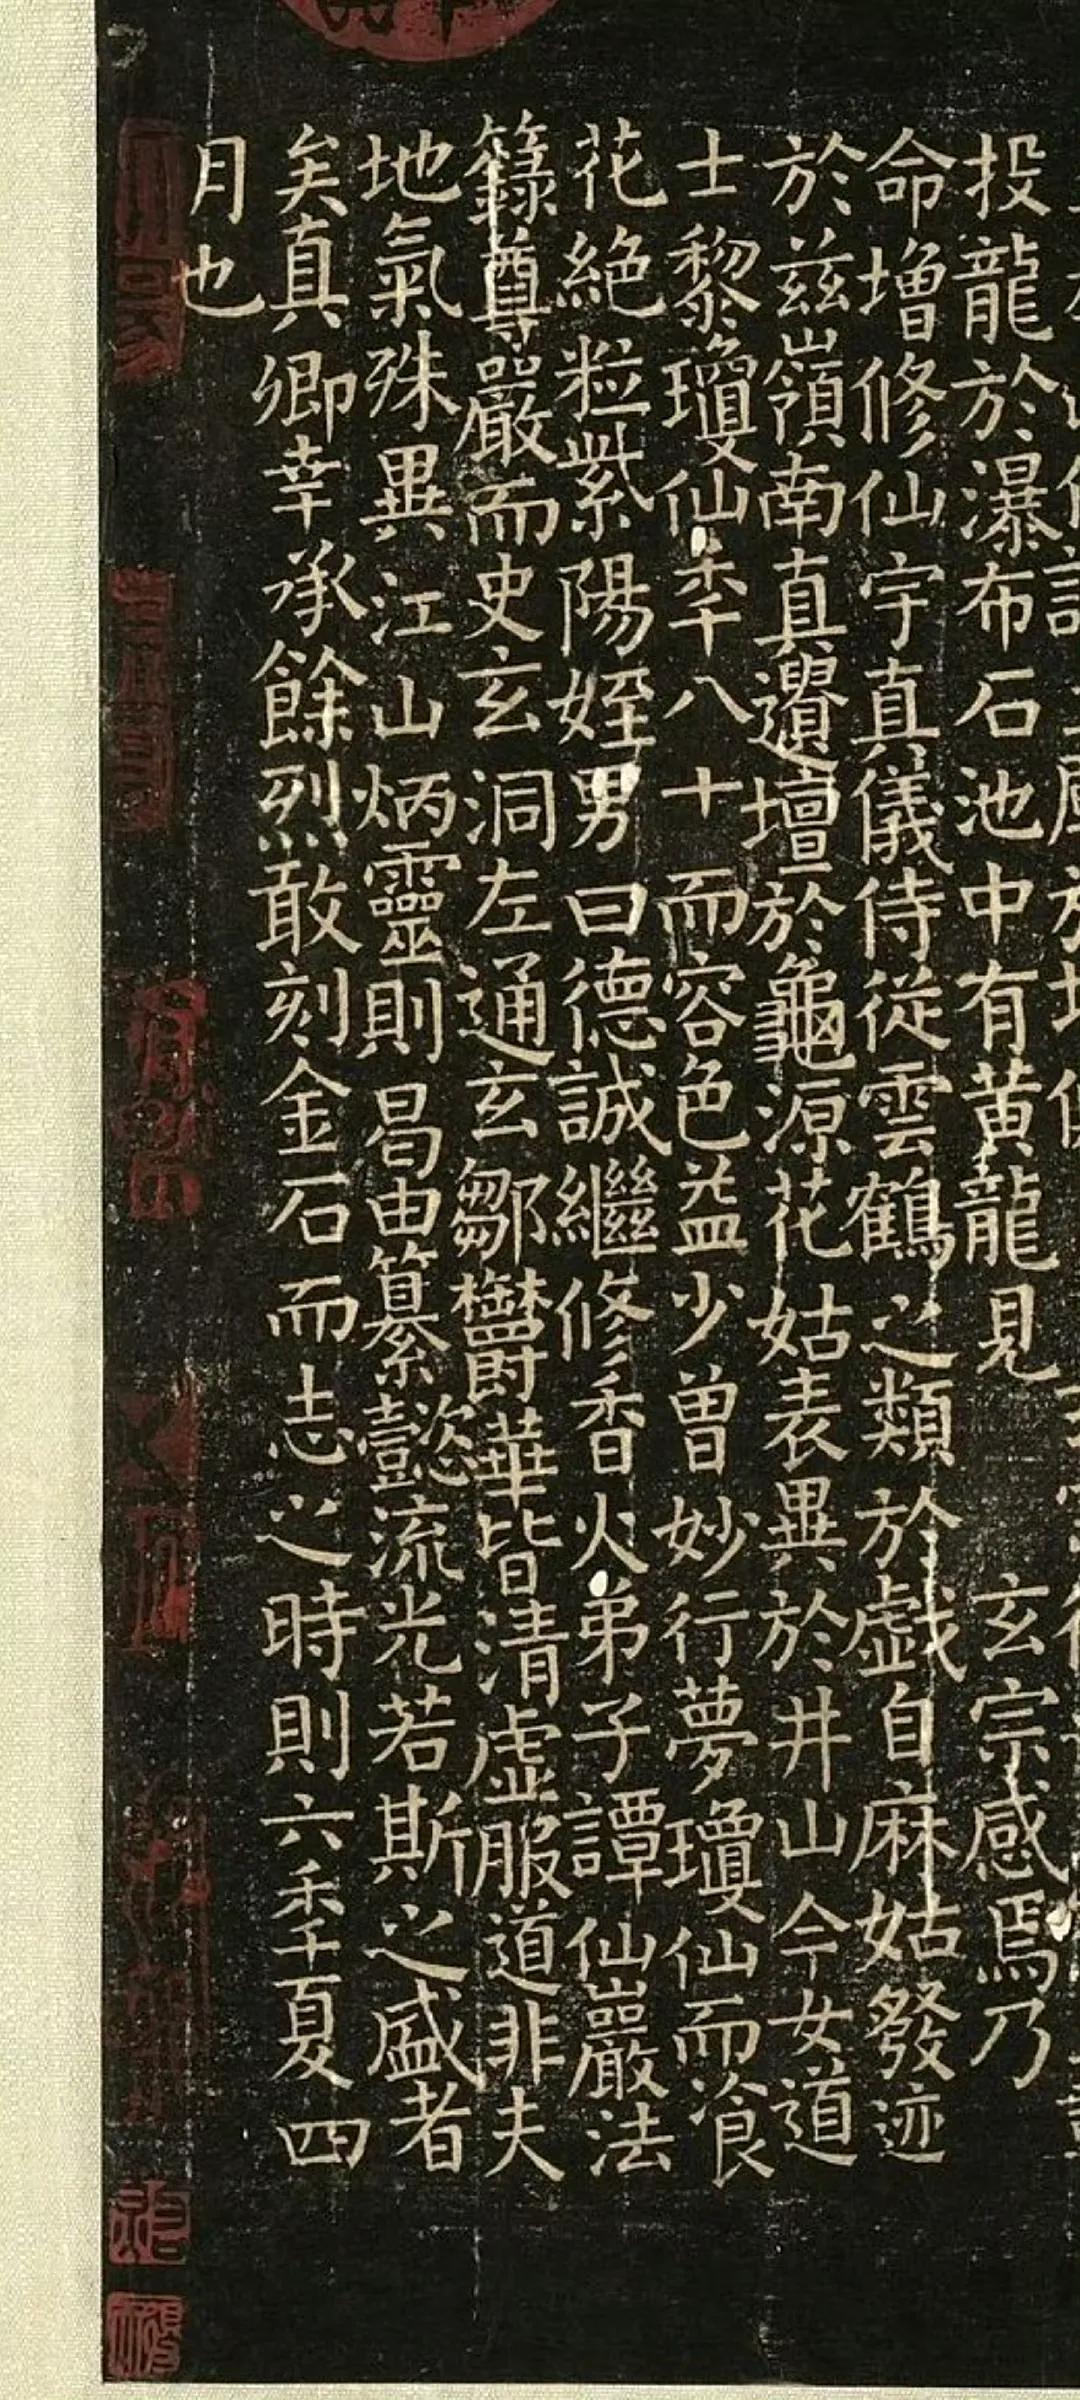 投龍於瀑布石池中有黃龍見玄宗感焉乃
命增修仙宇真儀侍從雲鶴之類於戲自麻姑發迹
於茲嶺南真遺壇於龜源花姑表異於井山今女道
士黎瓊仙年八十而容色益少曾妙行夢瓊仙而飡
花絕粒紫陽姪男曰德誠繼修香火弟子譚仙巖法
籙尊嚴而史玄洞左通玄鄒鬱華皆清虛服道非夫
地氣殊異江山炳靈則曷由纂懿流光若斯之盛者
矣真卿幸承餘烈敢刻金石而志之時則六年夏四
月也